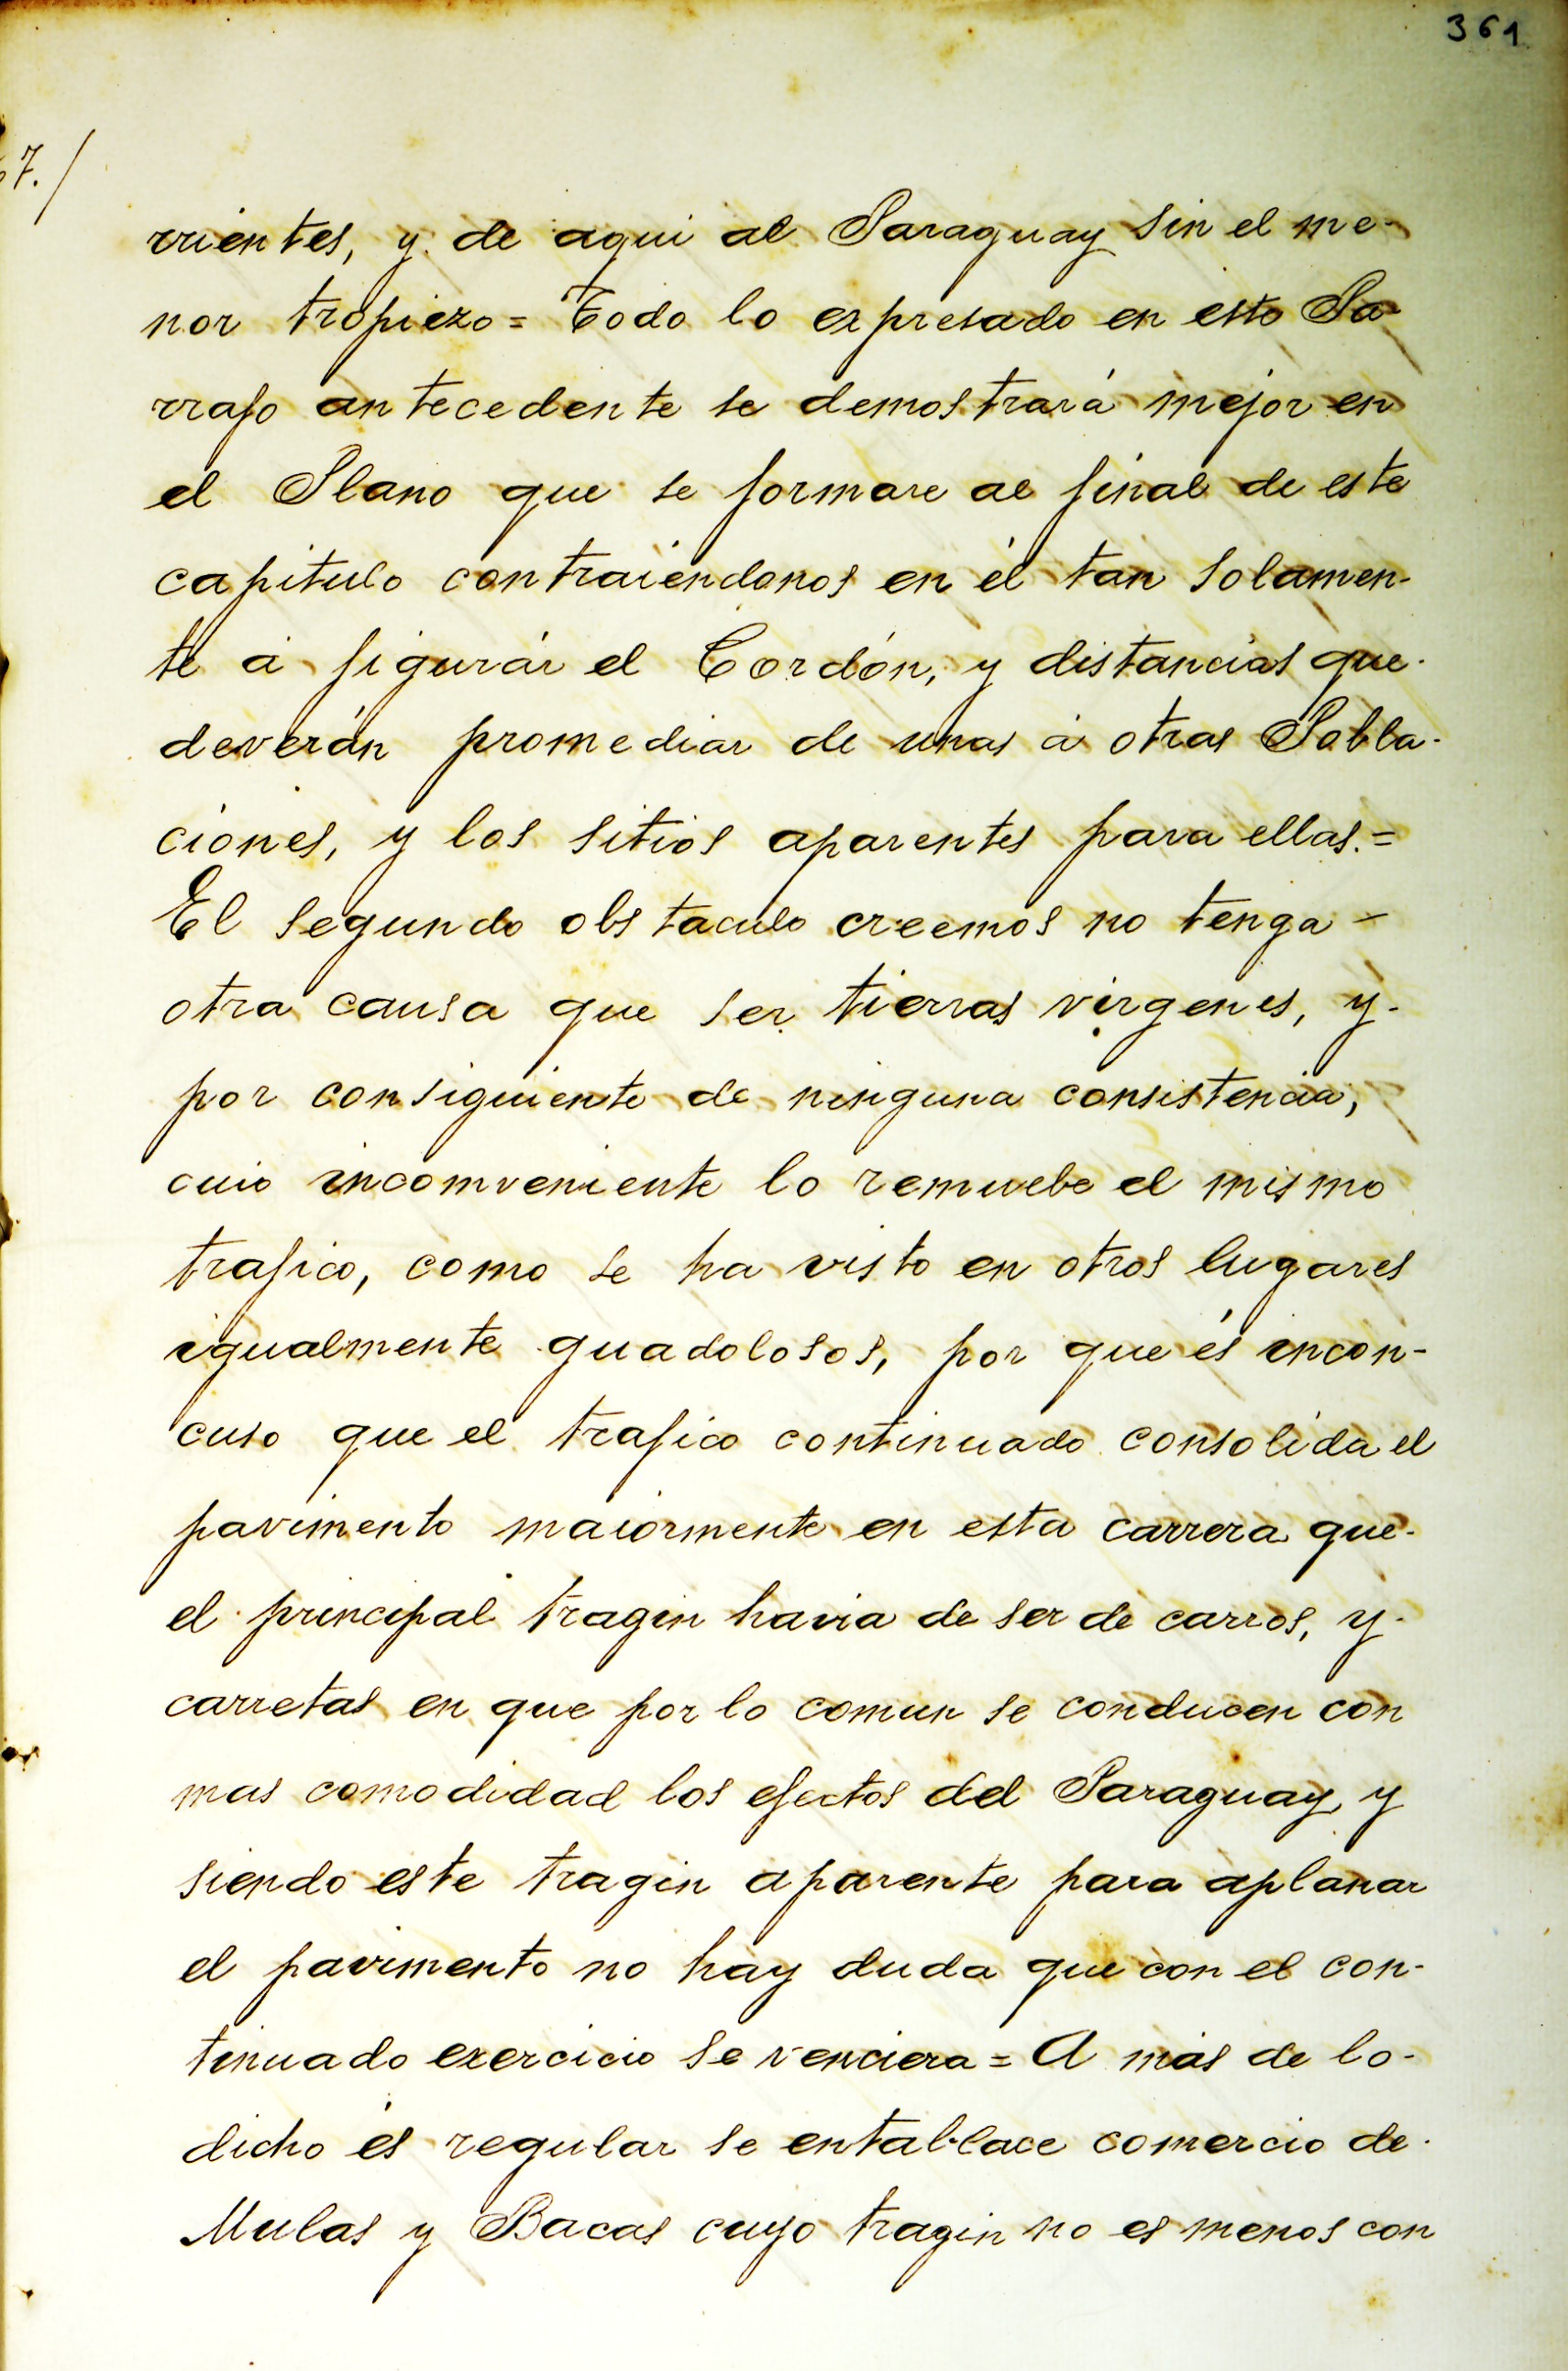 361
7./
rrientes, y de aqui al Paraguay sin el me-
nor tropiezo = Todo lo expresado en esto Pa-
rrafo antecedente se demostrará mejor en
el Plano que se formare al final de este
capitulo contraiendonos en él tan solamen-
te á figurár el Cordón, y distancias que-
deverán promediar de unas á otras Pobla-
ciones, y los sitios aparentes para ellas.=
El segundo obstaculo creemos no tenga -
otra causa que ser tierras virgenes, y-
por consiguiente de ninguna consistencia,
cuio incomveniente lo remuebe el mismo
trafico, como se ha visto en otros lugares
igualmente guadolosos, por que és incon-
cuso que el trafico continuado consolida el
pavimento maiormente en esta carrera que-
el principal tragin havia de ser de carros, y-
carretas en que por lo comun se conducen con
mas comodidad los efectos del Paraguay, y
siendo este tragin aparente para aplanar
el pavimento no hay duda que con el con-
tinuado exercicio se venciera = A más de lo-
dicho és regular se entablace comercio de-
Mulas y Bacas cuyo tragin no es menos con